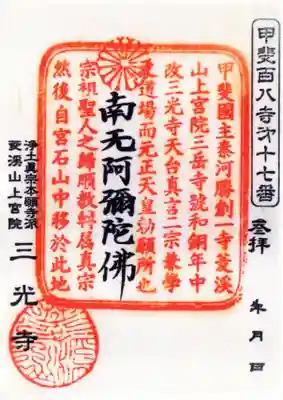 甲斐百八寺第十七番
参拝
年 月 日
甲斐國主秦河勝創一寺菱渓
山上宮院三岳寺號和銅年中
改三光寺天台真言二宗兼学
道場而元正天皇勅願所也
南无阿彌陀佛
宗祖聖人之歸順教轉為真宗
然後自宮石山中移於此地
浄土真宗本願寺派
菱渓山上宮院
三光寺